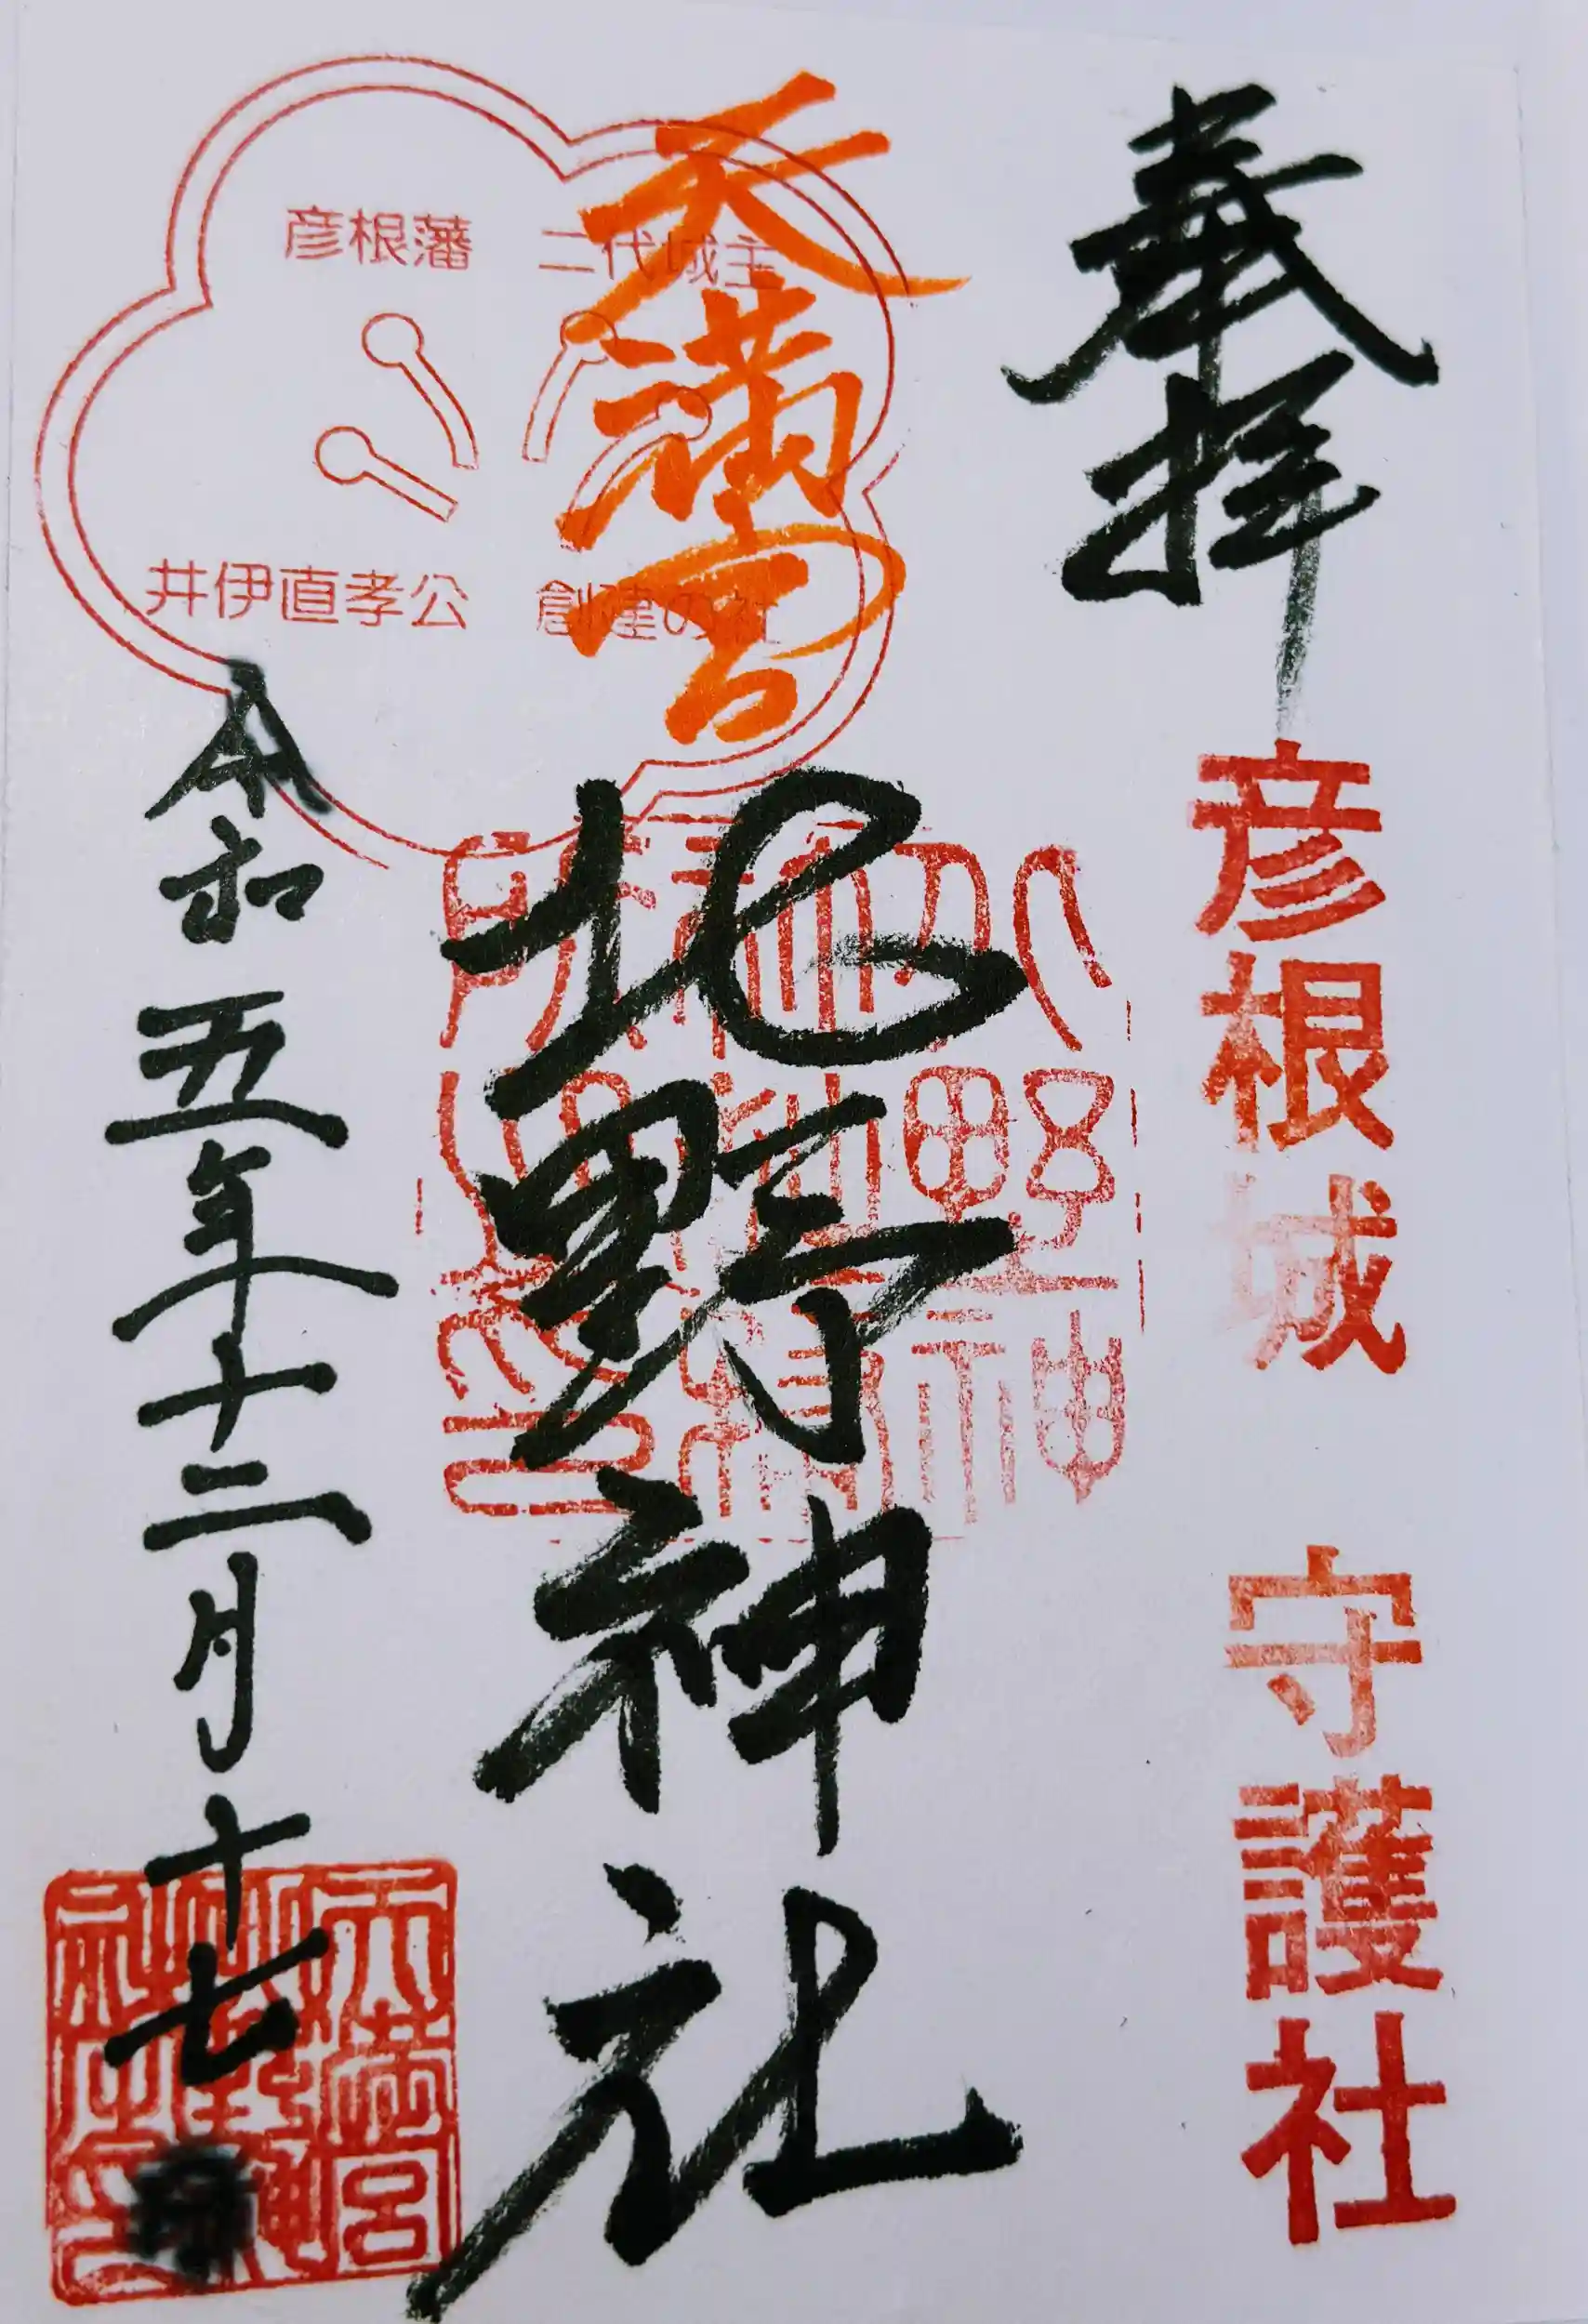 奉拝
彦根城 守護社
天満宮
北野神社
彦根藩 二代城主
井伊直孝公 創建の社
令和五年十二月十七